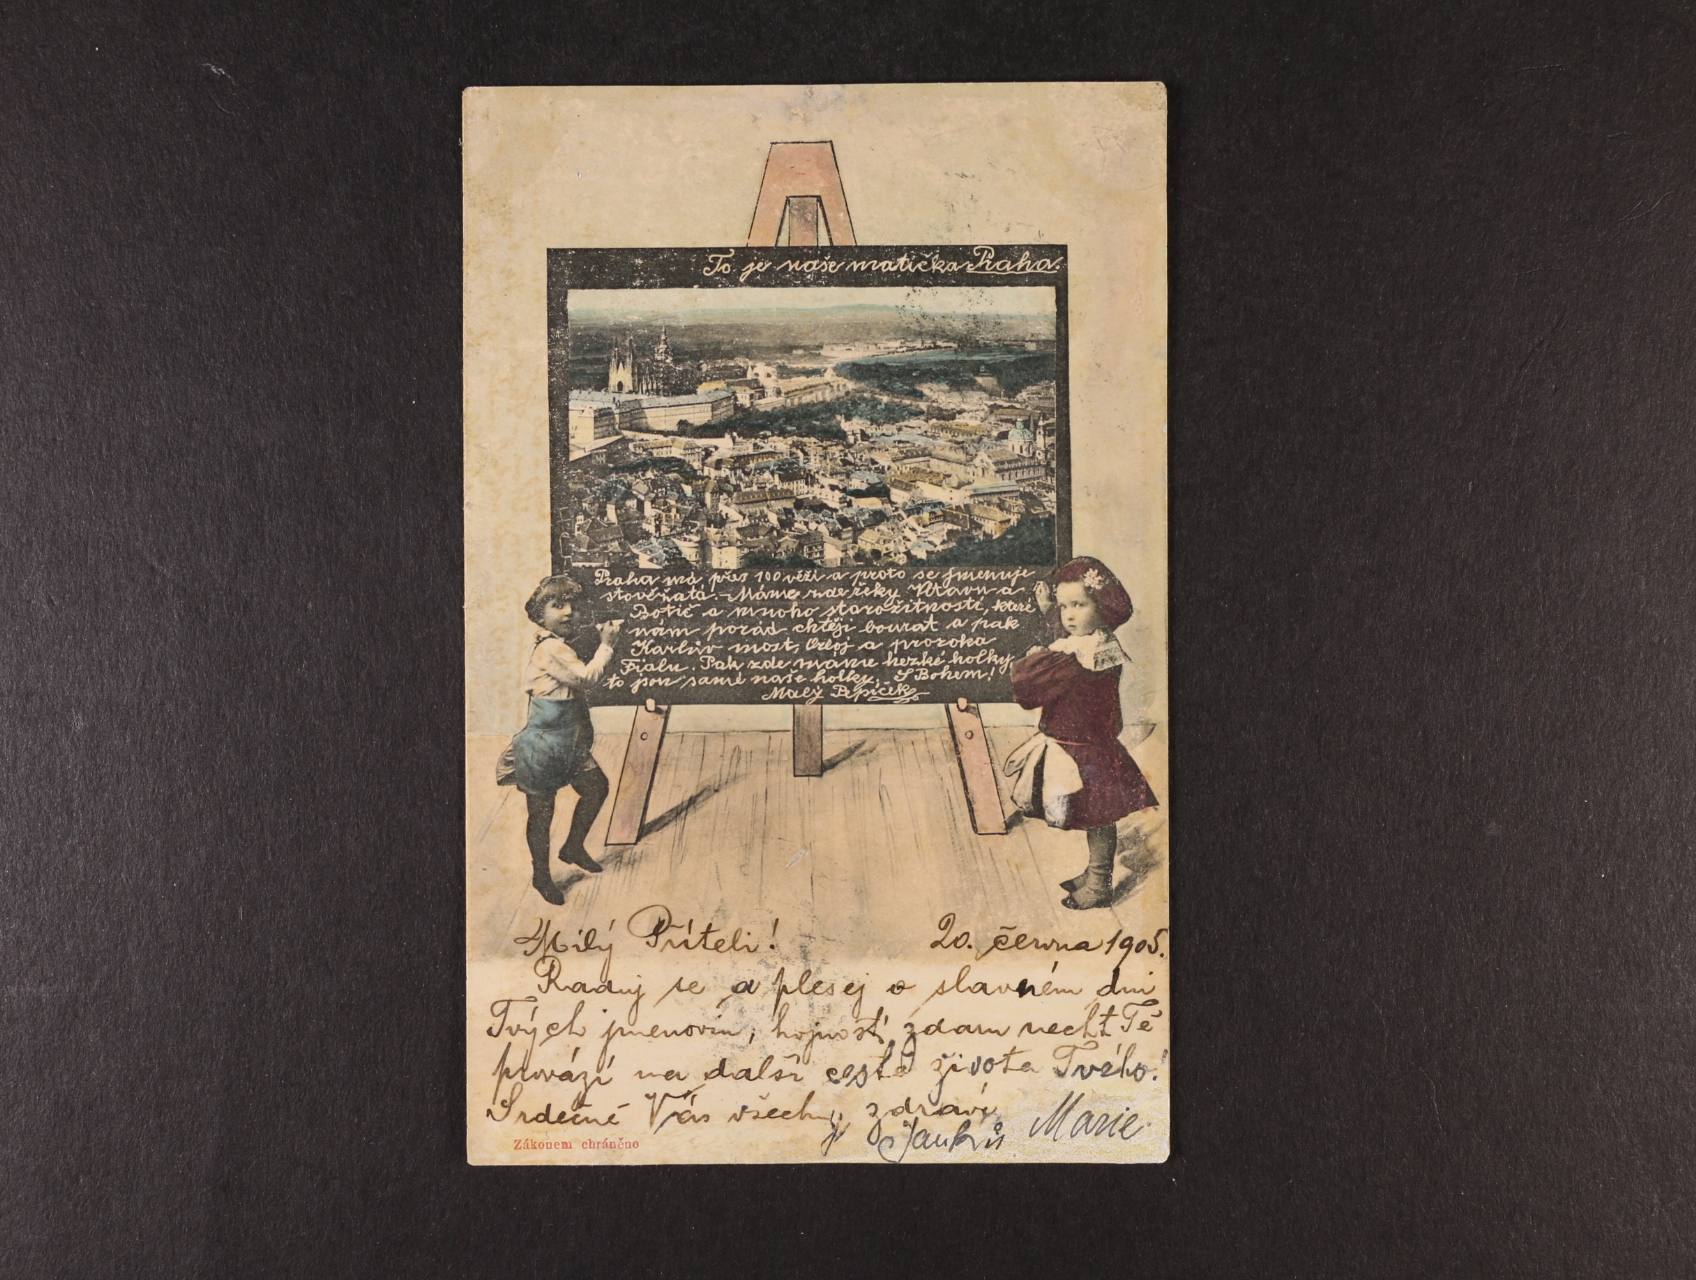 To je naše matička Praha.
Praha má přes 100 věží a proto se jmenuje
stověžatá. Máme zde řeky Vltavu a
Botič a mnoho starožitností, které
nám pořád chtějí bourat a pak
Karlův most, Orloj a proroka
Fialu. Pak zde máme hezké holky,
to jsou samé naše holky. S Bohem!
Malý Pepíček
Milý Příteli! 20. června 1905.
Raduj se a plesej o slavném dni
Tvých jmenovin, hojnost zdaru nechť Tě
provází na další cestě života Tvého!
Srdečně Vás všechny zdraví
Marie.
Zákonem chráněno